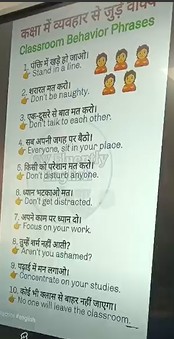 कक्षा में व्यवहार से जुड़े वाक्य
Classroom Behavior Phrases
1. पंक्ति में खड़े हो जाओ।
Stand in a line.
2. शरारत मत करो।
Don't be naughty.
3. एक-दूसरे से बात मत करो।
Don't talk to each other.
4. सब अपनी जगह पर बैठो।
Everyone, sit in your place.
5. किसी को परेशान मत करो।
Don't disturb anyone.
6. ध्यान भटकाओ मत।
Don't get distracted.
7. अपने काम पर ध्यान दो।
Focus on your work.
8. तुम्हें शर्म नहीं आती?
Aren't you ashamed?
9. पढ़ाई में मन लगाओ।
Concentrate on your studies.
10. कोई भी क्लास से बाहर नहीं जाएगा।
No one will leave the classroom.